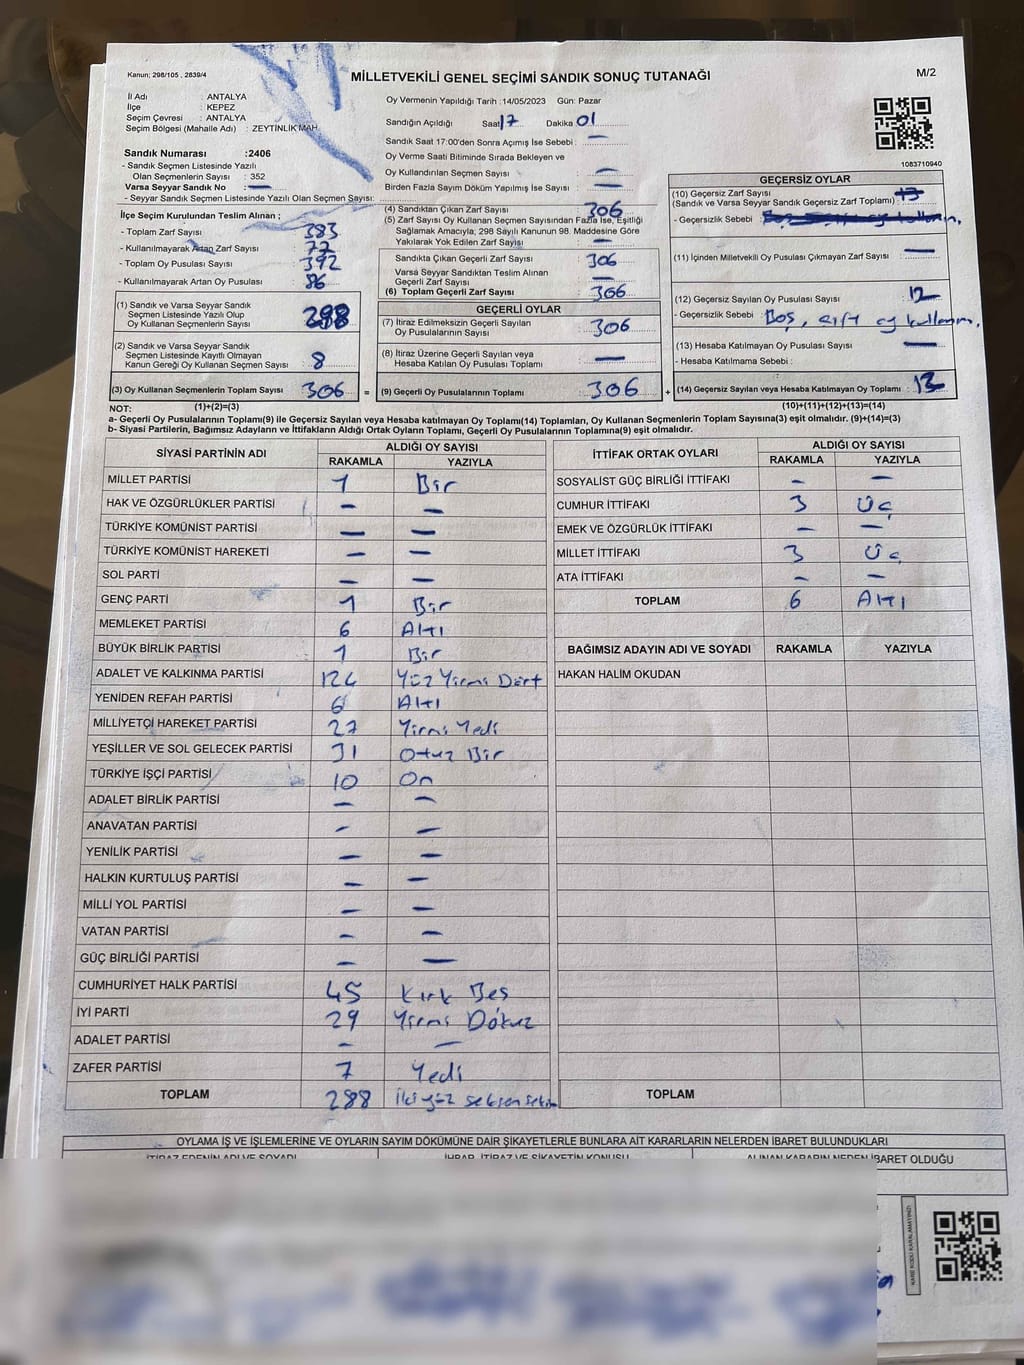 Kanun; 298/105 , 2839/4
MİLLETVEKİLİ GENEL SEÇİMİ SANDIK SONUÇ TUTANAĞI
M/2
İl Adı : ANTALYA
İlçe : KEPEZ
Seçim Çevresi : ANTALYA
Seçim Bölgesi (Mahalle Adı) : ZEYTİNLİK MAH.
Sandık Numarası :2406
- Sandık Seçmen Listesinde Yazılı
Olan Seçmenlerin Sayısı : 352
Varsa Seyyar Sandık No : —
- Seyyar Sandık Seçmen Listesinde Yazılı Olan Seçmen Sayısı:
Oy Vermenin Yapıldığı Tarih :14/05/2023 Gün: Pazar
Sandığın Açıldığı Saat 17 Dakika 01
Sandık Saat 17:00'den Sonra Açımış İse Sebebi : —
Oy Verme Saati Bitiminde Sırada Bekleyen ve
Oy Kullandırılan Seçmen Sayısı : —
Birden Fazla Sayım Döküm Yapılmış İse Sayısı : —
1083710940
İlçe Seçim Kurulundan Teslim Alınan ;
- Toplam Zarf Sayısı : 383
- Kullanılmayarak Artan Zarf Sayısı : 77
- Toplam Oy Pusulası Sayısı : 392
- Kullanılmayarak Artan Oy Pusulası : 86
(1) Sandık ve Varsa Seyyar Sandık
Seçmen Listesinde Yazılı Olup
Oy Kullanan Seçmenlerin Sayısı : 298
(2) Sandık ve Varsa Seyyar Sandık
Seçmen Listesinde Kayıtlı Olmayan
Kanun Gereği Oy Kullanan Seçmen Sayısı : 8
(3) Oy Kullanan Seçmenlerin Toplam Sayısı : 306 =
(4) Sandıktan Çıkan Zarf Sayısı : 306
(5) Zarf Sayısı Oy Kullanan Seçmen Sayısından Fazla İse, Eşitliği
Sağlamak Amacıyla; 298 Sayılı Kanunun 98. Maddesine Göre
Yakılarak Yok Edilen Zarf Sayısı : —
Sandıkta Çıkan Geçerli Zarf Sayısı : 306
Varsa Seyyar Sandıktan Teslim Alınan
Geçerli Zarf Sayısı : —
(6) Toplam Geçerli Zarf Sayısı : 306
GEÇERLİ OYLAR
(7) İtiraz Edilmeksizin Geçerli Sayılan
Oy Pusulalarının Sayısı : 306
(8) İtiraz Üzerine Geçerli Sayılan veya
Hesaba Katılan Oy Pusulası Toplamı : —
(9) Geçerli Oy Pusulalarının Toplamı : 306 +
GEÇERSİZ OYLAR
(10) Geçersiz Zarf Sayısı
(Sandık ve Varsa Seyyar Sandık Geçersiz Zarf Toplamı) : 13
- Geçersizlik Sebebi :
(11) İçinden Milletvekili Oy Pusulası Çıkmayan Zarf Sayısı : —
(12) Geçersiz Sayılan Oy Pusulası Sayısı : 12
- Geçersizlik Sebebi : Boş, çift oy kullanım,
(13) Hesaba Katılmayan Oy Pusulası Sayısı : —
- Hesaba Katılmama Sebebi :
(14) Geçersiz Sayılan veya Hesaba Katılmayan Oy Toplamı :
NOT: (1)+(2)=(3) (10)+(11)+(12)+(13)=(14)
a- Geçerli Oy Pusulalarının Toplamı(9) ile Geçersiz Sayılan veya Hesaba katılmayan Oy Toplamı(14) Toplamları, Oy Kullanan Seçmenlerin Toplam Sayısına(3) eşit olmalıdır. (9)+(14)=(3)
b- Siyasi Partilerin, Bağımsız Adayların ve İttifakların Aldığı Ortak Oyların Toplamı, Geçerli Oy Pusulalarının Toplamına(9) eşit olmalıdır.
SİYASİ PARTİNİN ADI ALDIĞI OY SAYISI
RAKAMLA YAZIYLA
MİLLET PARTİSİ 1 Bir
HAK VE ÖZGÜRLÜKLER PARTİSİ — —
TÜRKİYE KOMÜNİST PARTİSİ — —
TÜRKİYE KOMÜNİST HAREKETİ — —
SOL PARTİ — —
GENÇ PARTİ 1 Bir
MEMLEKET PARTİSİ 6 Altı
BÜYÜK BİRLİK PARTİSİ 1 Bir
ADALET VE KALKINMA PARTİSİ 124 Yüz Yirmi Dört
YENİDEN REFAH PARTİSİ 6 Altı
MİLLİYETÇİ HAREKET PARTİSİ 27 Yirmi Yedi
YEŞİLLER VE SOL GELECEK PARTİSİ 31 Otuz Bir
TÜRKİYE İŞÇİ PARTİSİ 10 On
ADALET BİRLİK PARTİSİ — —
ANAVATAN PARTİSİ — —
YENİLİK PARTİSİ — —
HALKIN KURTULUŞ PARTİSİ — —
MİLLİ YOL PARTİSİ — —
VATAN PARTİSİ — —
GÜÇ BİRLİĞİ PARTİSİ — —
CUMHURİYET HALK PARTİSİ 45 Kırk Beş
İYİ PARTİ 29 Yirmi Dokuz
ADALET PARTİSİ — —
ZAFER PARTİSİ 7 Yedi
TOPLAM 288 İki yüz seksen sekiz
İTTİFAK ORTAK OYLARI ALDIĞI OY SAYISI
RAKAMLA YAZIYLA
SOSYALİST GÜÇ BİRLİĞİ İTTİFAKI — —
CUMHUR İTTİFAKI 3 Üç
EMEK VE ÖZGÜRLÜK İTTİFAKI — —
MİLLET İTTİFAKI 3 Üç
ATA İTTİFAKI — —
TOPLAM 6 Altı
BAĞIMSIZ ADAYIN ADI VE SOYADI RAKAMLA YAZIYLA
HAKAN HALİM OKUDAN
TOPLAM
OYLAMA İŞ VE İŞLEMLERİNE VE OYLARIN SAYIM DÖKÜMÜNE DAİR ŞİKAYETLERLE BUNLARA AİT KARARLARIN NELERDEN İBARET BULUNDUKLARI
İTİRAZ EDENİN ADI VE SOYADI İHBAR, İTİRAZ VE ŞİKAYETİN KONUSU ALINAN KARARIN NEDEN İBARET OLDUĞU
KARE KODU KARALAMAYINIZ!